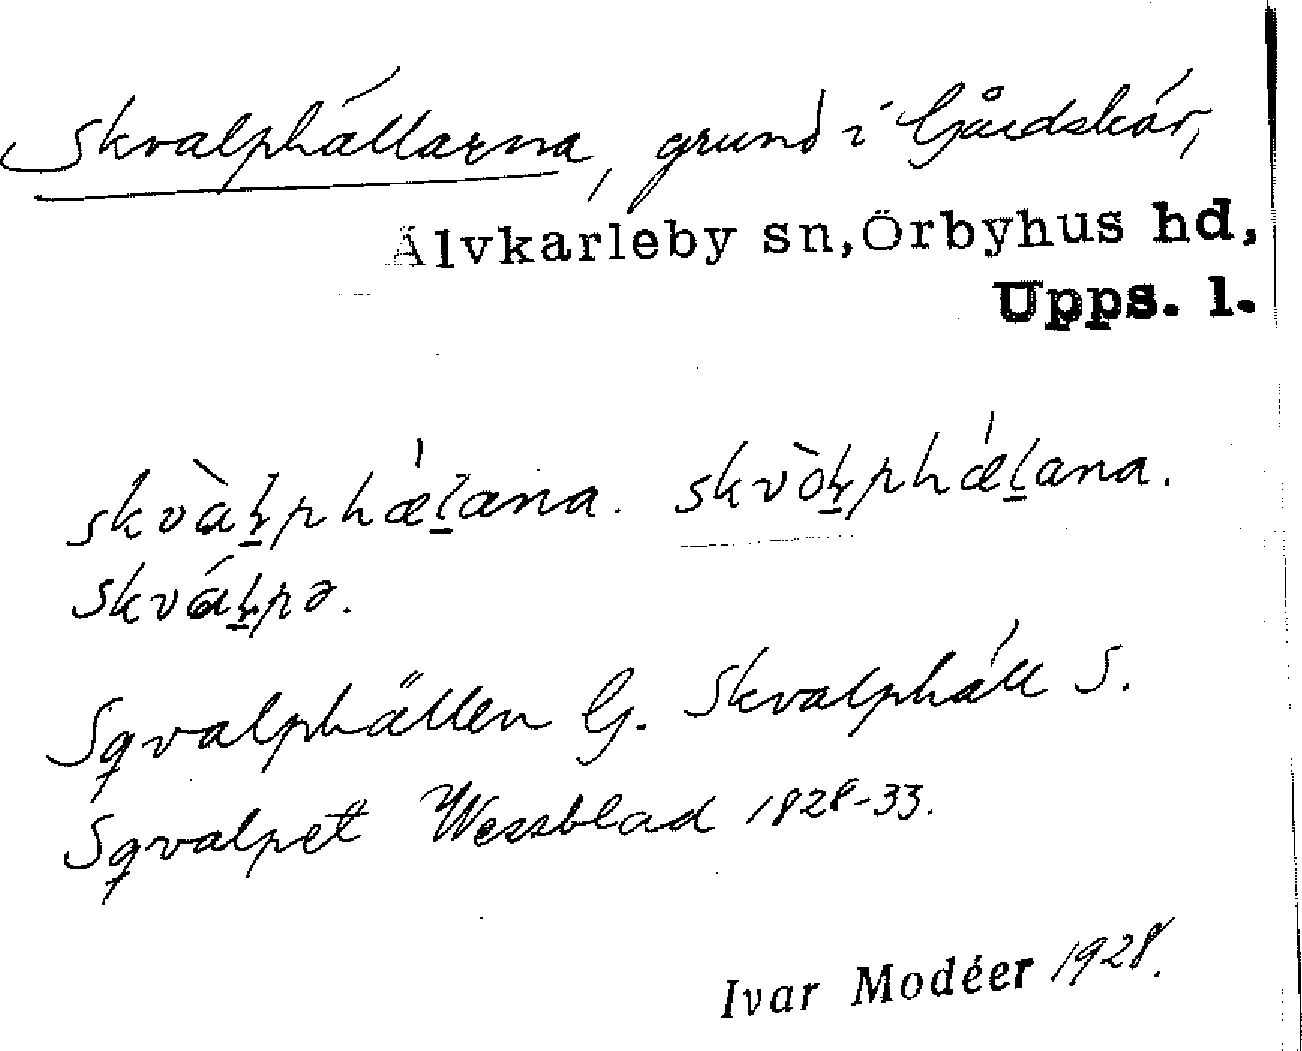 Skvalphällarna, grund i Gårdskär,
Älvkarleby sn, Örbyhus hd,
Upps. l.
skvàḷphæ̍ḷana. skvòḷphæ̍ḷana.
skváḷpə.
Sqvalphällen G. Skvalphäll S.
Sqvalpet Wessblad 1828-33.
Ivar Modéer 1928.